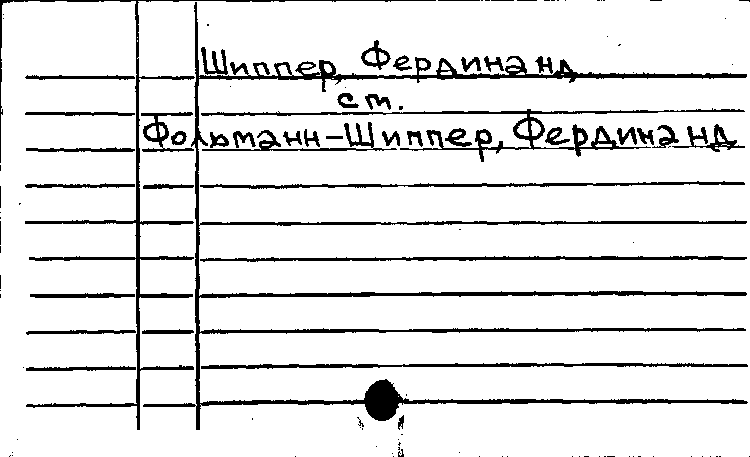 Шиппер, Фердинанд
ст.
Фольманн-Шиппер, Фердинанд